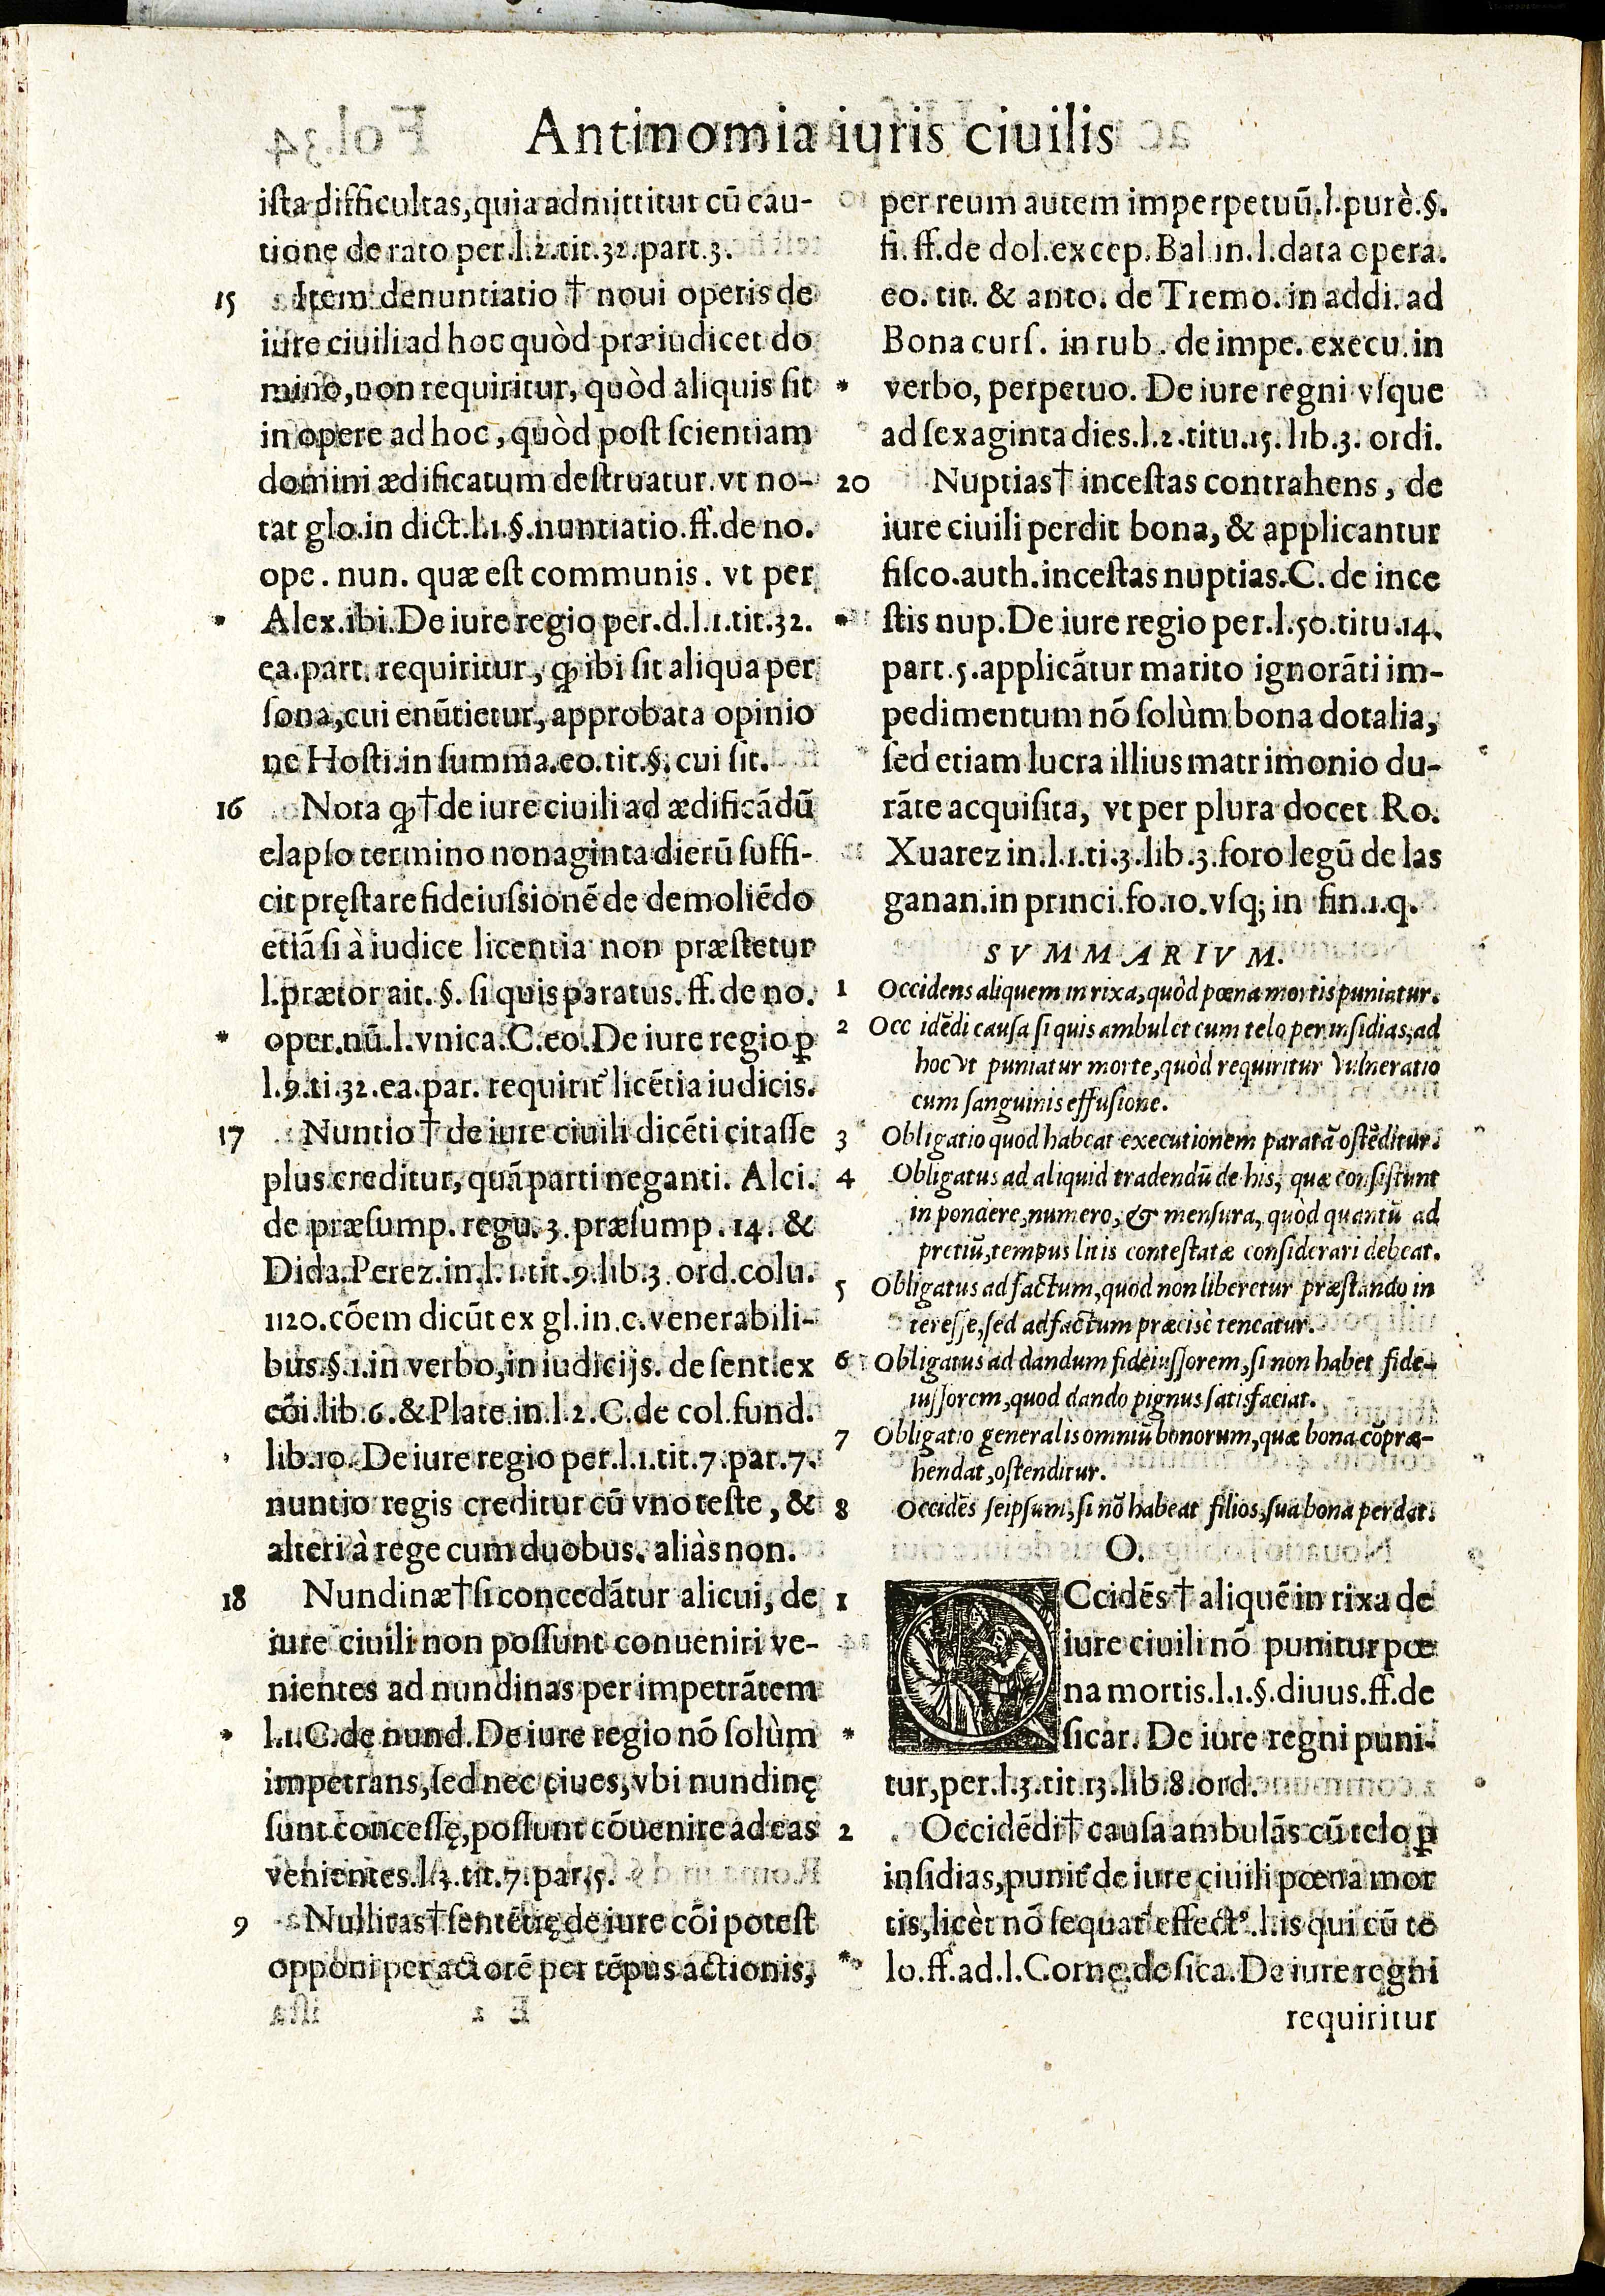 Antinomia iuris ciuilis
iſta difficultas, quia admittitur cū cau-
tione de rato per.l.2.tit.32.part.3.
15 Item denuntiatio † noui operis de
iure ciuili ad hoc quòd præiudicet do
mino, non requiritur, quòd aliquis ſit
in opere ad hoc, quòd poſt ſcientiam
domini ædificatum deſtruatur. vt no-
tat glo.in dict.l.1.§.nuntiatio.ff.de no.
ope. nun. quæ eſt communis. vt per
* Alex.ibi.De iure regio per.d.l.1.tit.32.
ea.part. requiritur, ꝙ ibi ſit aliqua per
ſona, cui enūtietur, approbata opinio
ne Hoſti.in ſumma.eo.tit.§.cui ſit.
16 Nota ꝙ † de iure ciuili ad ædificādū
elapſo termino nonaginta dierū ſuffi-
cit pręſtare fideiuſsionē de demoliēdo
etiā ſi à iudice licentia non præſtetur
l.prætor ait. §. ſi quis paratus. ff. de no.
* oper.nū.l.vnica.C.eo.De iure regio ꝑ
l.9.ti.32.ea.par. requirit᷑ licētia iudicis.
17 Nuntio † de iure ciuili dicēti citaſſe
plus creditur, quā parti neganti. Alci.
de præſump. regu. 3. præſump. 14. &
Dida.Perez.in.l.1.tit.9.lib.3. ord.colu.
1120.cōem dicūt ex gl.in.c.venerabili-
bus.§.1.in verbo, in iudicijs. de ſent.ex
cōi.lib.6.& Plate.in.l.2.C.de col.fund.
lib.10. De iure regio per.l.1.tit.7.par.7.
nuntio regis creditur cū vno teſte, &
alteri à rege cum duobus. aliàs non.
18 Nundinæ † ſi concedātur alicui, de
iure ciuili non poſſunt conueniri ve-
nientes ad nundinas per impetrātem
* l.1.C.de nund. De iure regio nō ſolùm
impetrans, ſed nec ciues, vbi nundinę
ſunt conceſſę, poſſunt cōuenire ad eas
venientes.l.3.tit.7.par.5.
9 Nullitas † ſentētię de iure cōi poteſt
opponi per actorē per tēpus actionis,
per reum autem imperpetuū.l.purè.§.
fi.ff.de dol.excep.Bal.in.l.data opera.
eo. tit. & anto. de Tremo. in addi. ad
Bona curſ. in rub. de impe. execu. in
* verbo, perpetuo. De iure regni vſque
ad ſexaginta dies.l.2.titu.15.lib.3. ordi.
20 Nuptias † inceſtas contrahens, de
iure ciuili perdit bona, & applicantur
fiſco.auth.inceſtas nuptias.C. de ince
* ſtis nup.De iure regio per.l.50.titu.14.
part.5.applicātur marito ignorāti im-
pedimentum nō ſolùm bona dotalia,
ſed etiam lucra illius matrimonio du-
rāte acquiſita, vt per plura docet Ro.
Xuarez in.l.1.ti.3.lib.3.foro legū de las
ganan.in princi.fo.10.vſq; in fin.1.q.
SVMMARIVM.
1 Occidens aliquem in rixa, quòd pœna mortis puniatur.
2 Occ idēdi cauſa ſi quis ambulet cum telo per inſidias, ad
hoc vt puniatur morte, quòd requiritur vulneratio
cum ſanguinis effuſione.
3 Obligatio quod habeat executionem paratā oſtēditur.
4 Obligatus ad aliquid tradendū de his, quæ conſiſtunt
in pondere, numero, & menſura, quòd quantū ad
pretiū, tempus litis conteſtatæ conſiderari debeat.
5 Obligatus ad factum, quod non liberetur præſtando in
tereſſe, ſed ad factum præciſè teneatur.
6 Obligatus ad dandum fideiuſſorem, ſi non habet fide-
iuſſorem, quod dando pignus ſatisfaciat.
7 Obligatio generalis omniū bonorum, quæ bona cōpræ-
hendat, oſtenditur.
8 Occidēs ſeipſum, ſi nō habeat filios, ſua bona perdat.
O.
1 OCcidēs † aliquē in rixa de
iure ciuili nō punitur pœ
na mortis.l.1.§.diuus.ff.de
* ſicar. De iure regni puni-
tur, per.l.3.tit.13.lib.8.ord.
2 Occidēdi † cauſa ambulās cū telo ꝑ
inſidias, punit᷑ de iure ciuili pœna mor
tis, licèt nō ſequat᷑ effectꝰ.l.is qui cū te
* lo.ff.ad.l.Corne.de ſica. De iure regni
requiritur